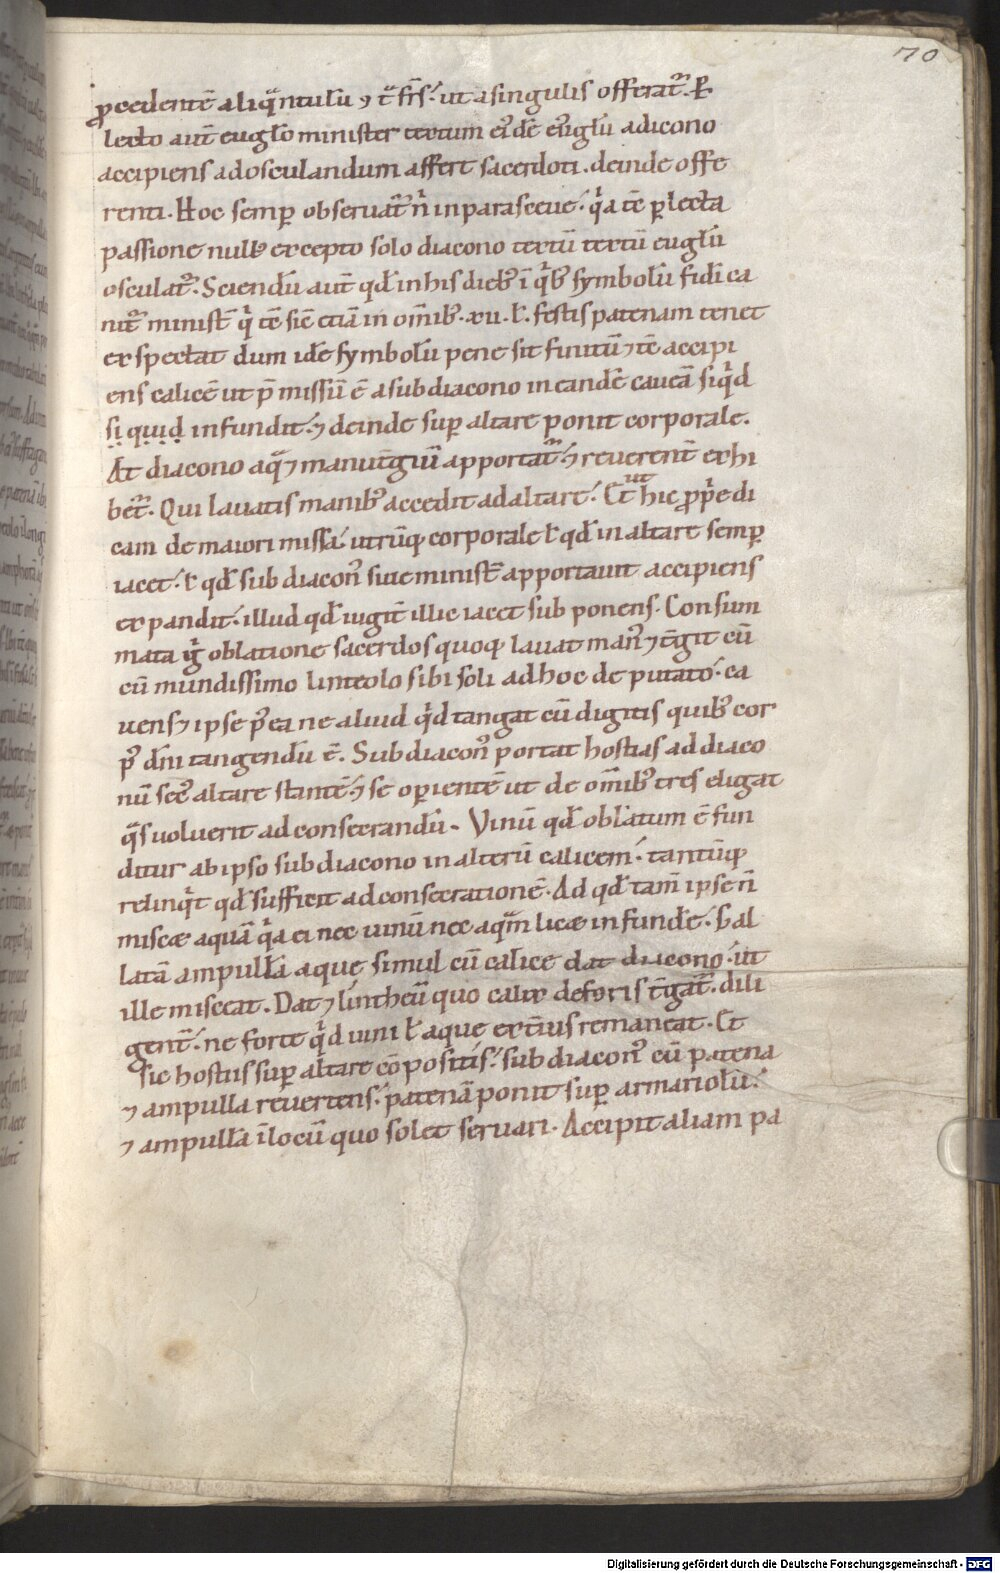 70
ꝓcedentē aliq̄ntulū ⁊ c̄ fr̄s. ut asingulis offerat᷑. Ꝑ
lecto aut̄ euglo minister textum ei᷒dē eu̅gl̄ii adicono
accipiens adosculandum affert sacerdoti. deinde offe
renti. Hoc semꝑ obseruat᷑ n̄ inparaseeue. q̄a tc̄ ꝑlecta
passione nullꝰ excepto solo diacono textū textū euglii
osculat᷑. Sciendū aut̄ qđ inhis diebꝰ ī q̄bꝰ symbolū fidei ca
nit᷑ minist̄ q̄ tc̄ sic̄ etiā in om̄ibꝰ .xii. ł. festis patenam tenet
exspectat dum idē symbolū pene sit finitū ⁊ tc̄ accipi
ens calicē ut p̄missū ē asubdiacono ineandē caueā siq̄d
si quid infundit. ⁊ deinde suꝑ altare ponit corporale.
At diacono aq̄ ⁊ manut̄giū apportat᷑ ⁊ reuerent̄ exhi
bet᷑. Qui lauatis manibꝰ accedit adaltare. Et ut hic ꝓp̄e di
cam de maiori missa. utrūq; corporale ł qđ inaltare semꝑ
iacet. ł qđ subdiaconꝰ siue minist̄ apportauit accipiens
expandit. illud qđ iugit̄ illic iacet subponens. Consum
mata ḡ oblatione sacerdos quoq; lauat manꝰ ⁊ t̄git eū
cū mundissimo linteolo sibi soli adhoc deputato. ca
uens ⁊ ipse p̄ea ne aliud q̄d tangat cū digitis quibꝰ cor
pꝰ dn̄i tangendū ē. Subdiaconꝰ portat hostias addiaco
nū sec̄ altare stantē ⁊ se oꝑientē ut de om̄ibꝰ tres eligat
q̄s uoluerit adconsecrandū. Vinū qđ oblatum ē fun
ditur abipso subdiacono inalterū calicem. tantūq;
relinq̄t qđ sufficit adconsecrationē. Ad qđ tam̄ ipse n̄
miscæ aquā q̄a ei nec uinū nec aq̄m licæ infundē. S; al
latā ampullā aque simul cū calice dat diacono. ut
ille misceat. Dat ⁊ lintheū quo calix deforis t̄gat᷑. dili
gent̄. ne forte q̄d uini ł aque ext̄ius remaneat. Et
sic hostiis suꝑ altare cōpositis. subdiaconꝰ cū patena
⁊ ampulla reuertens. patenā ponit suꝑ armariolū.
⁊ ampullā ī locū quo solet seruari. Accipit aliam pa
Digitalisierung gefördert durch die Deutsche Forschungsgemeinschaft - DFG